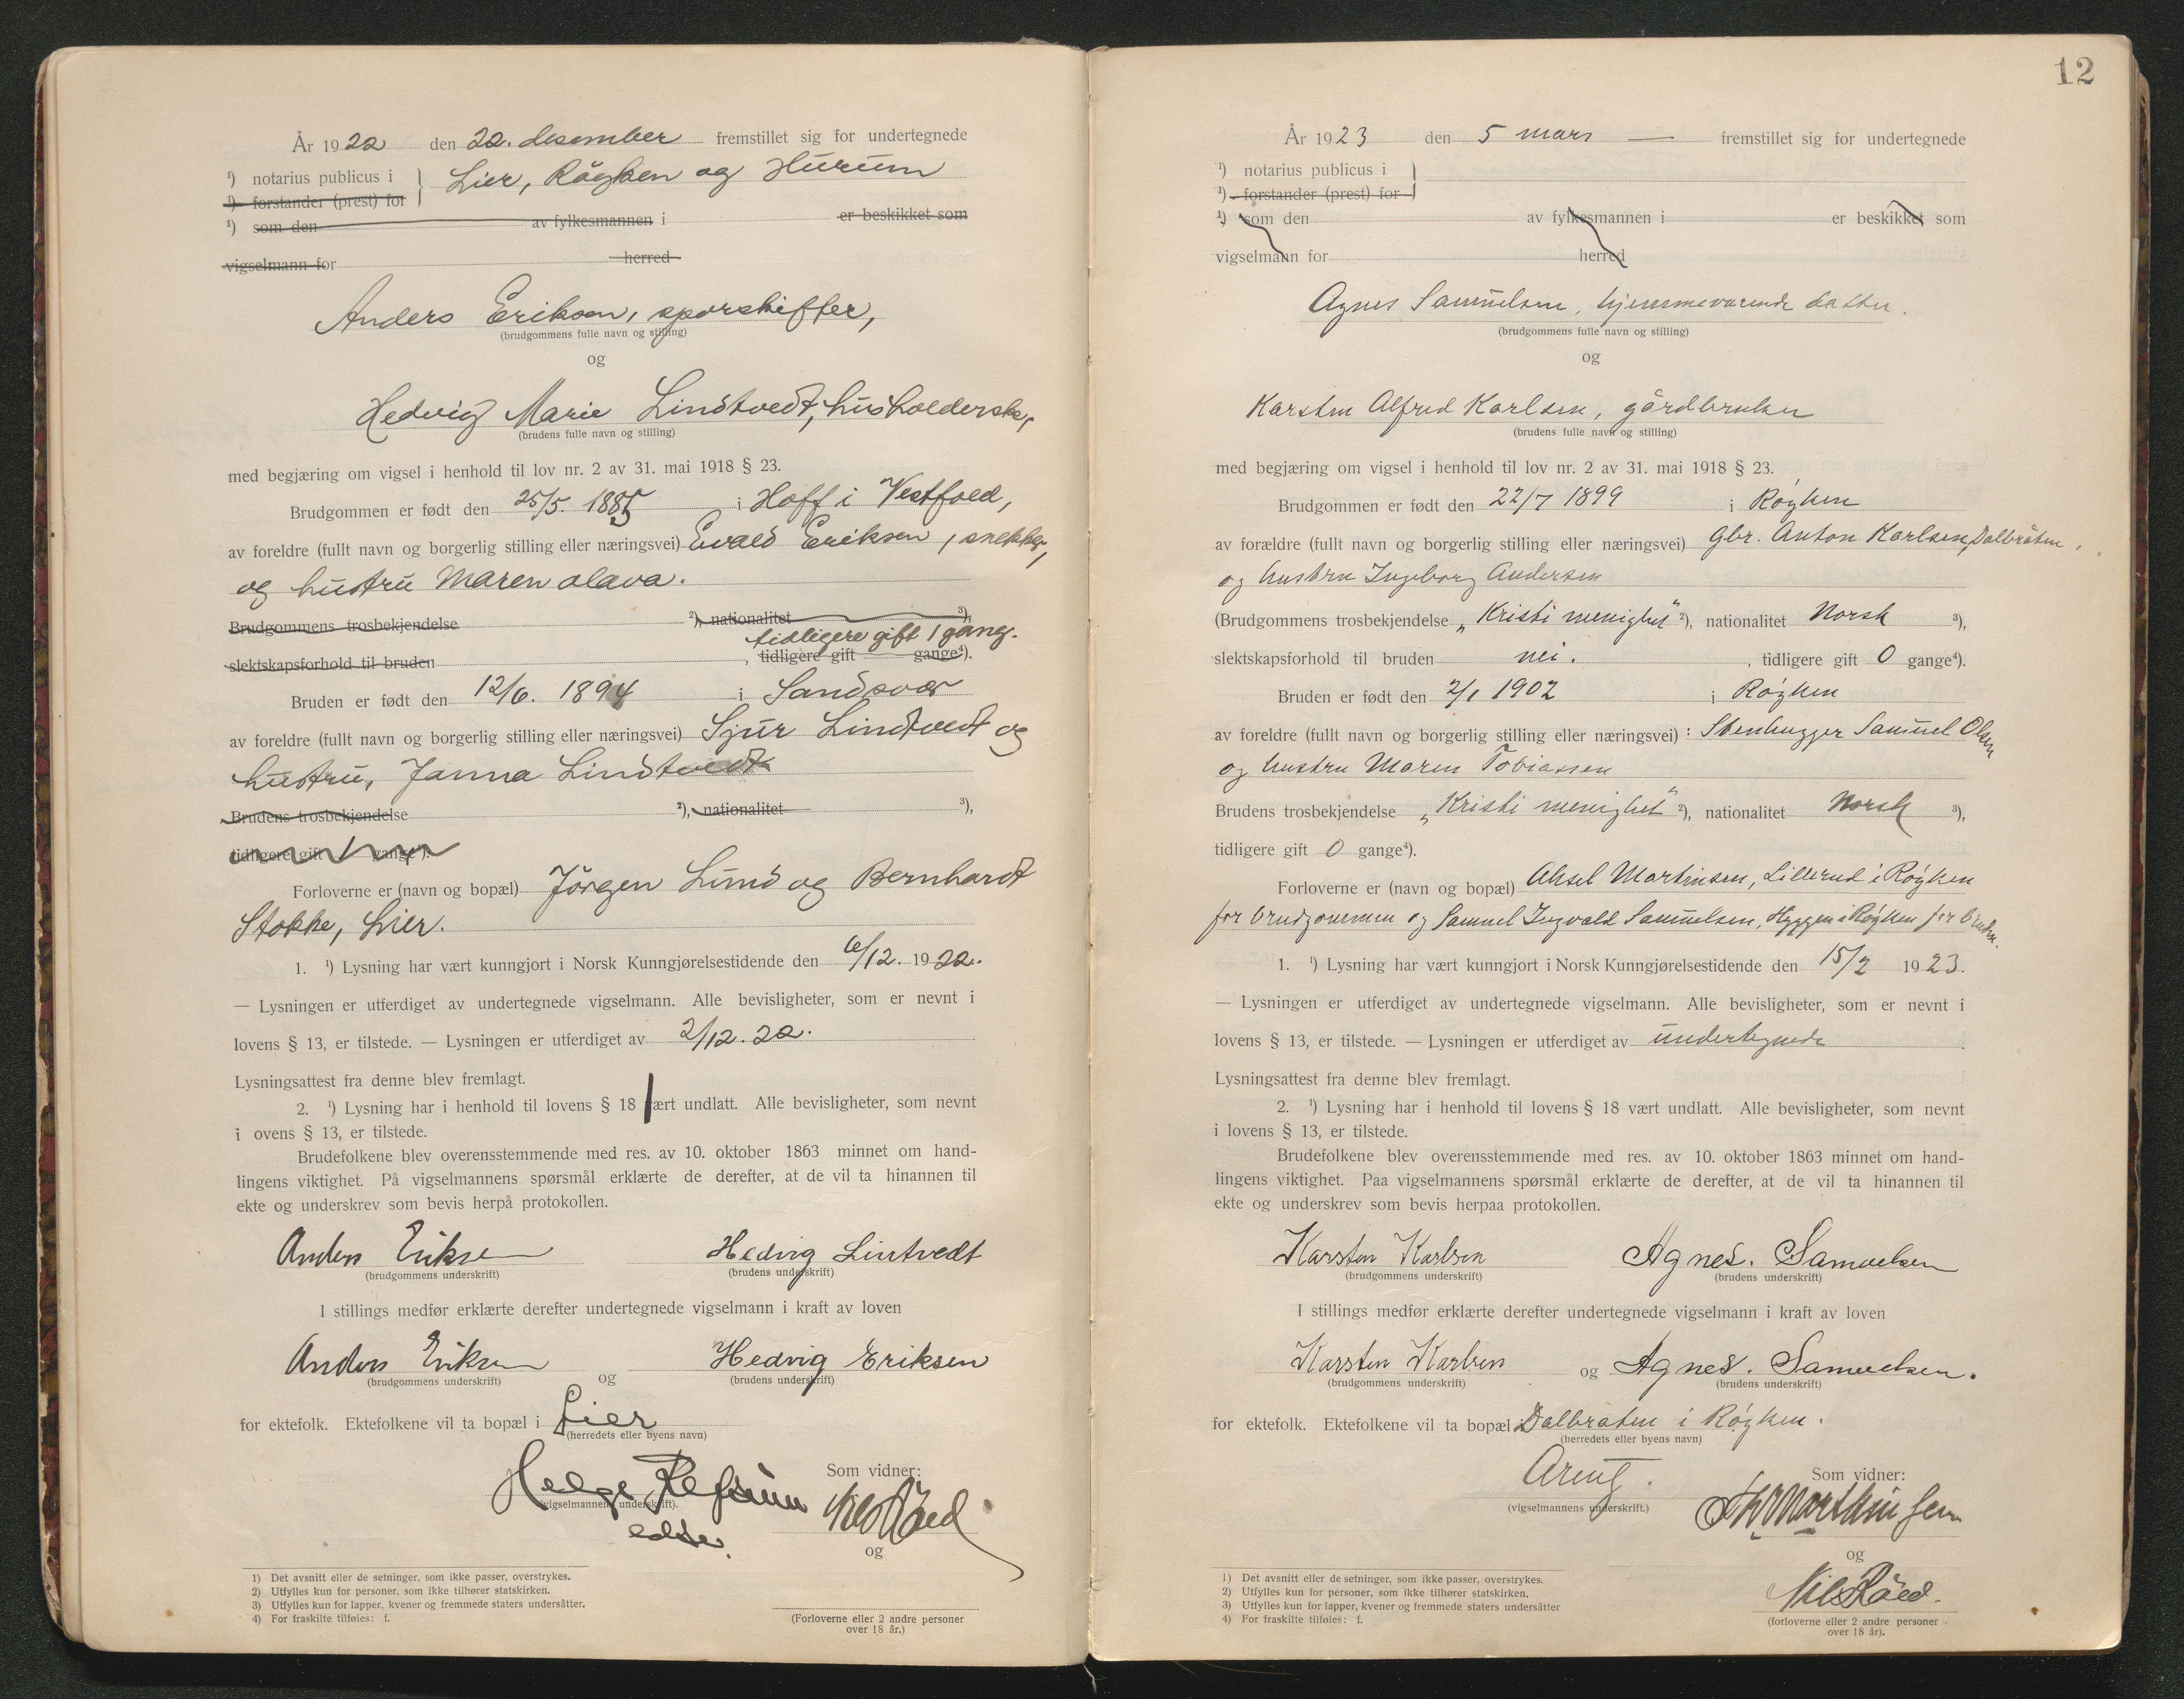 År 1922 den 22. desember fremstillet sig for undertegnede
¹) notarius publicus i } Lier, Röyken og Hurum
¹) forstander (prest) for
¹) som den av fylkesmannen i er beskikket som
vigselmann for herred
Anders Eriksen, sporskifter,
(brudgommens fulle navn og stilling)
og
Hedvig Marie Lindtvedt, husholderske,
(brudens fulle navn og stilling)
med begjæring om vigsel i henhold til lov nr. 2 av 31. mai 1918 § 23.
Brudgommen er født den 25/5. 1885 i Hoff i Vestfold,
av foreldre (fullt navn og borgerlig stilling eller næringsvei) Evald Eriksen, snekker,
og hustru Maren Olava.
Brudgommens trosbekjendelse ²), nationalitet ³),
tidligere gift 1 gang.
slektskapsforhold til bruden , tidligere gift gange⁴).
Bruden er født den 12/6. 1894 i Sandsvær
av foreldre (fullt navn og borgerlig stilling eller næringsvei) Sjur Lindtvedt og
hustru, Janna Lindtvedt
Brudens trosbekjendelse ²), nationalitet ³),
tidligere gift gange⁴).
Forloverne er (navn og bopæl) Jörgen Lund og Bernhardt
Stokke, Lier.
1. ¹) Lysning har vært kunngjort i Norsk Kunngjørelsestidende den 6/12. 1922.
— Lysningen er utferdiget av undertegnede vigselmann. Alle bevisligheter, som er nevnt i
lovens § 13, er tilstede. — Lysningen er utferdiget av 2/12. 22.
Lysningsattest fra denne blev fremlagt.
2. ¹) Lysning har i henhold til lovens § 18 vært undlatt. Alle bevisligheter, som nevnt
i ovens § 13, er tilstede.
Brudefolkene blev overensstemmende med res. av 10. oktober 1863 minnet om hand-
lingens viktighet. På vigselmannens spørsmål erklærte de derefter, at de vil ta hinannen til
ekte og underskrev som bevis herpå protokollen.
Anders Eriksen Hedvig Lintvedt
(brudgommens underskrift) (brudens underskrift)
I stillings medfør erklærte derefter undertegnede vigselmann i kraft av loven
Anders Eriksen og Hedvig Eriksen
(brudgommens underskrift) (brudens underskrift)
for ektefolk. Ektefolkene vil ta bopæl i Lier
(herredets eller byens navn)
Helge Refsum
(vigselmannens underskrift).
Som vidner:
Nils Röed
og
1) Det avsnitt eller de setninger, som ikke passer, overstrykes.
2) Utfylles kun for personer, som ikke tilhører statskirken.
3) Utfylles kun for lapper, kvener og fremmede staters undersåtter.
4) For fraskilte tilføies: f.
(Forloverne eller 2 andre personer
over 18 år.)
12
År 1923 den 5 mars — fremstillet sig for undertegnede
¹) notarius publicus i }
¹) forstander (prest) for
¹) som den av fylkesmannen i er beskikket som
vigselmann for herred
Agnes Samuelsen, hjemmeværende datter.
(brudgommens fulle navn og stilling)
og
Karsten Alfred Karlsen, gårdbruker
(brudens fulle navn og stilling)
med begjæring om vigsel i henhold til lov nr. 2 av 31. mai 1918 § 23.
Brudgommen er født den 22/7 1899 i Røyken
av forældre (fullt navn og borgerlig stilling eller næringsvei) Gbr. Anton Karlsen, Dalbråten,
og hustru Ingeborg Andersen
(Brudgommens trosbekjendelse „Kristi menighet" ²), nationalitet Norsk ³),
slektskapsforhold til bruden nei. , tidligere gift 0 gange⁴).
Bruden er født den 2/1 1902 i Røyken
av foreldre (fullt navn og borgerlig stilling eller næringsvei) : Stenhugger Samuel Olsen
og hustru Maren Tobiassen
Brudens trosbekjendelse „Kristi menighet" ²), nationalitet Norsk ³),
tidligere gift 0 gange⁴).
Forloverne er (navn og bopæl) Aksel Martinsen, Lillerud i Røyken
for brudgommen og Samuel Ingvald Samuelsen, Hyggen i Røyken for bruden.
1. ¹) Lysning har vært kunngjort i Norsk Kunngjørelsestidende den 15/2 1923.
— Lysningen er utferdiget av undertegnede vigselmann. Alle bevisligheter, som er nevnt i
lovens § 13, er tilstede. — Lysningen er utferdiget av undertegnede
Lysningsattest fra denne blev fremlagt.
2. ¹) Lysning har i henhold til lovens § 18 vært undlatt. Alle bevisligheter, som nevnt
i lovens § 13, er tilstede.
Brudefolkene blev overensstemmende med res. av 10. oktober 1863 minnet om hand-
lingens viktighet. Paa vigselmannens spørsmål erklærte de derefter, at de vil ta hinannen til
ekte og underskrev som bevis herpaa protokollen.
Karsten Karlsen Agnes. Samuelsen
(brudgommens underskrift) (brudens underskrift)
I stillings medfør erklærte derefter undertegnede vigselmann i kraft av loven
Karsten Karlsen og Agnes. Samuelsen.
(brudgommens underskrift) (brudens underskrift)
for ektefolk. Ektefolkene vil ta bopæl i Dalbraten i Røyken.
(herredets eller byens navn)
(vigselmannens underskrift.)
Som vidner:
og
Nils Röed.
1) Det avsnitt eller de setninger, som ikke passer, overstrykes.
2) Utfylles kun for personer, som ikke tilhører statskirken.
3) Utfylles kun for lapper, kvener og fremmede staters undersåtter
4) For fraskilte tilføies: f.
(forloverne eller 2 andre personer
over 18 år).